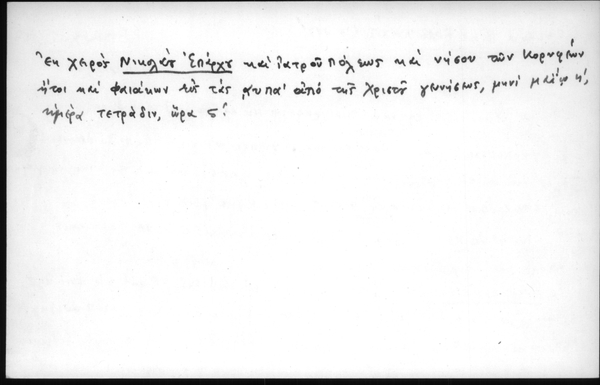 Ἐκ χειρὸς Νικολάου Ἐπάρχου καὶ ἰατροῦ πόλεως καὶ νήσου τῶν Κορυφῶν
ἤτοι καὶ φαιάκων ἐν τάς ͵αυπα' ἀπὸ τῆς Χριστοῦ γεννήσεως, μηνὶ μαΐῳ η',
ἡμέρα τετράδιν, ὥρα ς'.